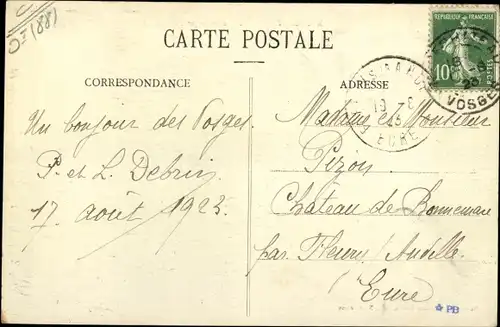 OF (88)
CARTE POSTALE
CORRESPONDANCE
ADRESSE
RÉPUBLIQUE FRANÇAISE
10
POSTES
VOSGES
EURE
Un bonjour des Vosges
P. et L. Debris
17 août 1923.
Madame et Monsieur
Pizon
Château de Bonnemare
par Fleury s/ Andelle.
Eure
PB